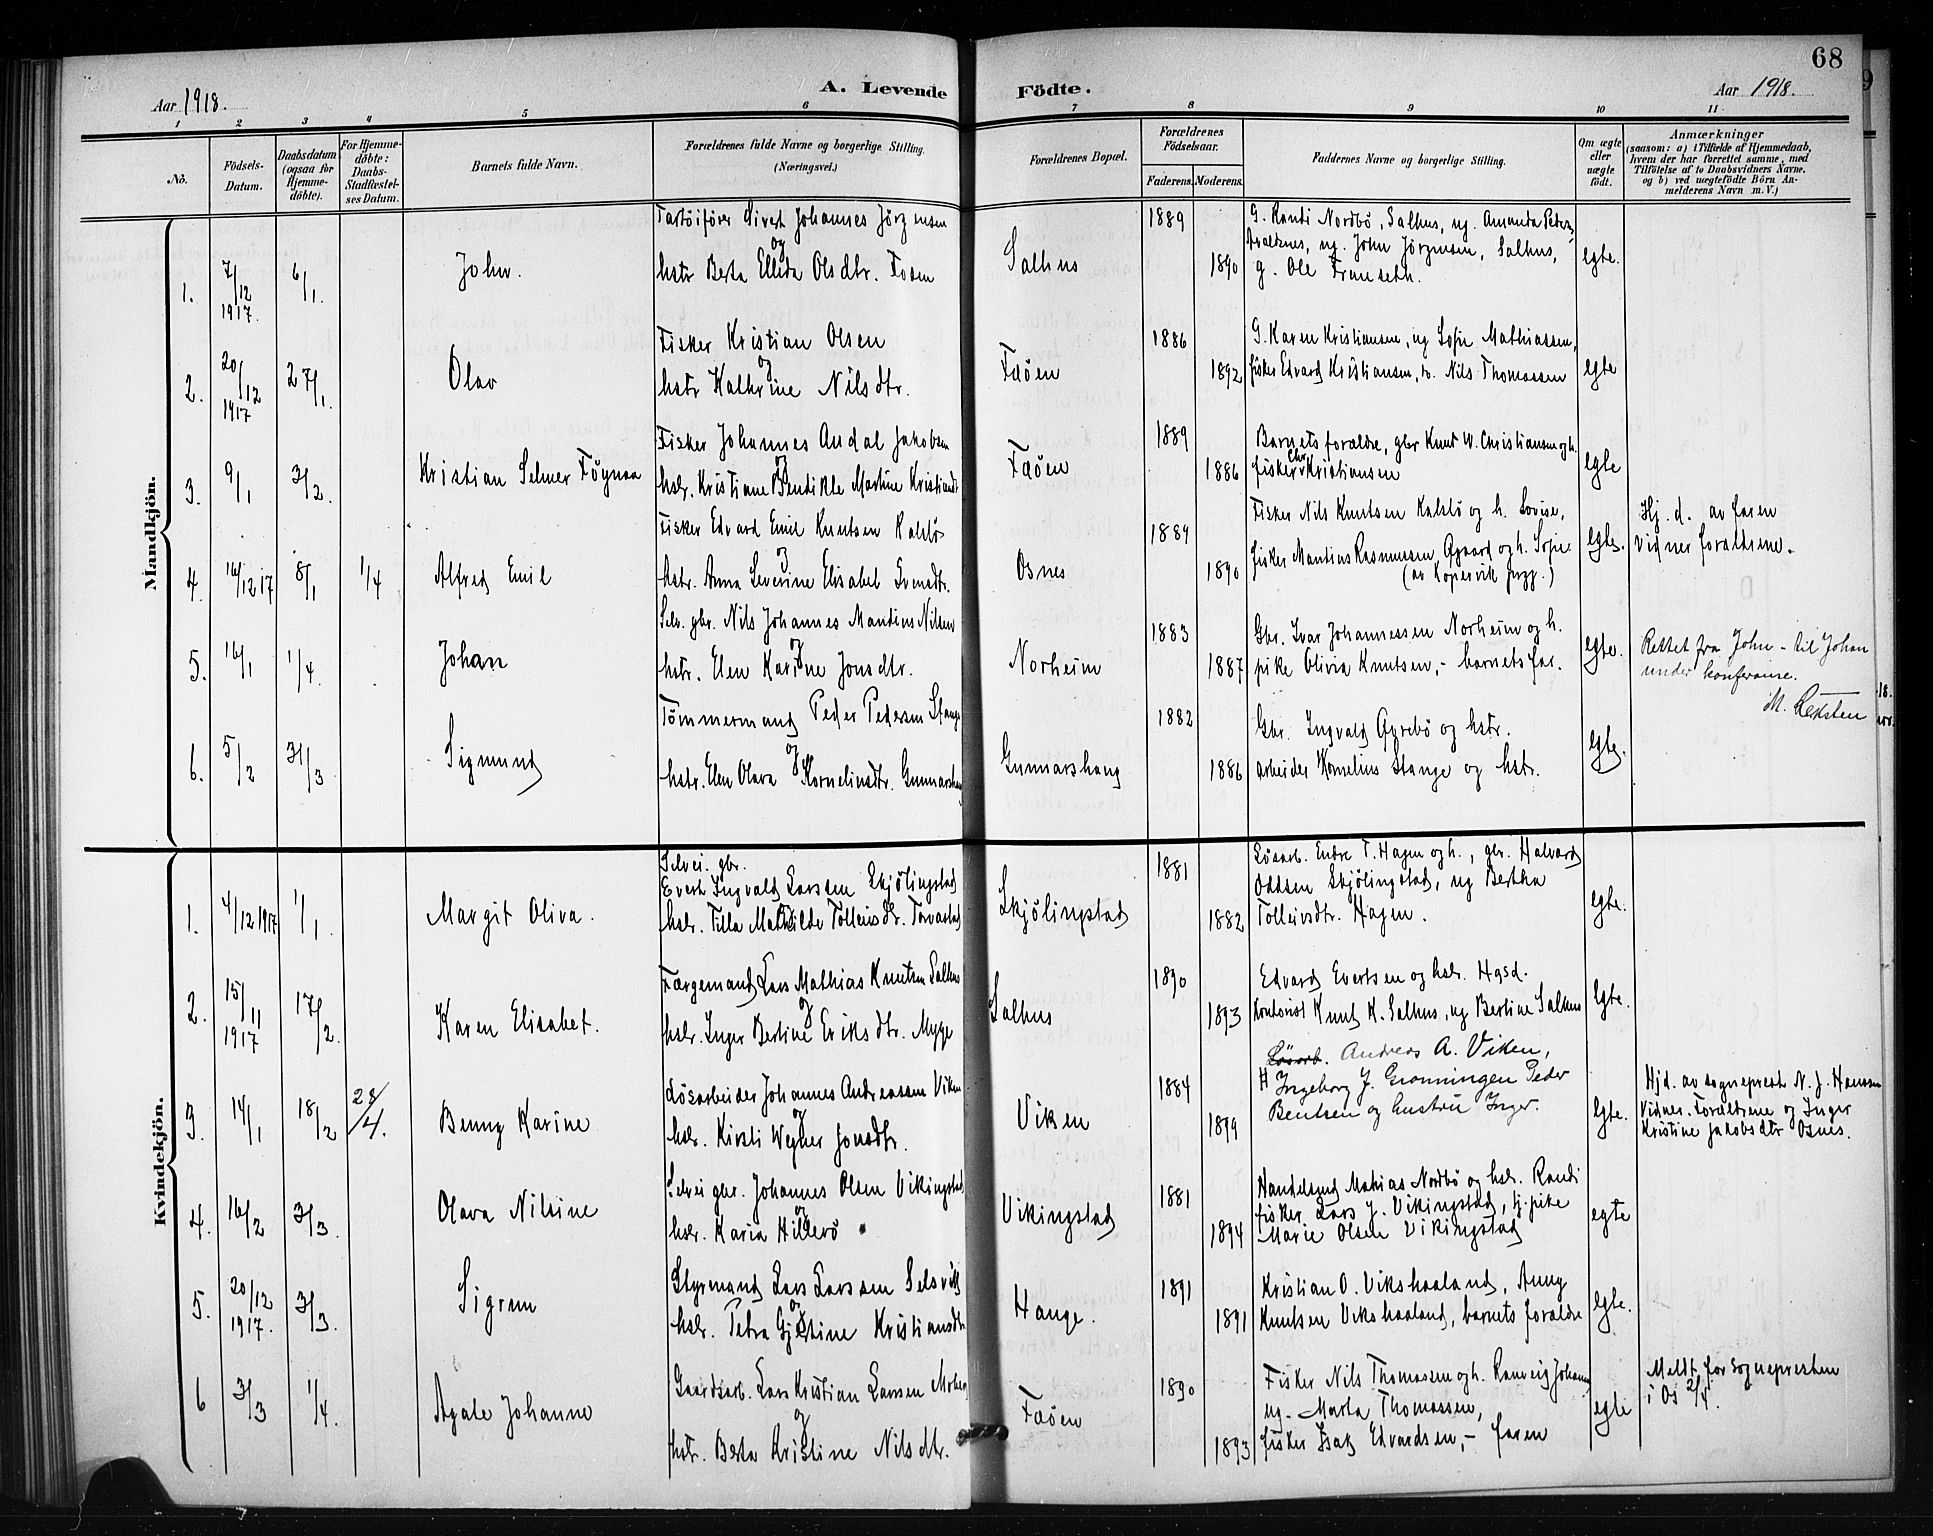 68
Aar 1918.
A. Levende
Födte.
Aar 1918.
1 2 3 4 5 6 7 8 9 10 11
No.
Födsels-
Datum.
Daabsdatum
(ogsaa for
Hjemme-
döbte).
For Hjemme-
döbte:
Daabs-
Stadfæstel-
ses Datum.
Barnets fulde Navn.
Forældrenes fulde Navne og borgerlige Stilling.
(Næringsvei.)
Forældrenes Bopæl.
Forældrenes
Födselsaar.
Faderens. Moderens.
Faddernes Navne og borgerlige Stilling.
Om ægte
eller
uægte
födt.
Anmærkninger
(saasom: a) i Tilfælde af Hjemmedaab,
hvem der har forrettet samme, med
Tilföielse af to Daabsvidners Navne,
og b) ved uægtefödte Börn An-
melderens Navn m. V.)
Mandkjön.
1.
7/12
1917.
6/1.
John.
Sivert Johannes Jörgensen
og
hstr Berta Elleda Olsdtr. Foen
Salhus
1889
1890
G. Randi Nordbö, Salhus, ug. Amanda Peders
ug. John Jörgensen, Salhus,
g. Ole Franseth.
egte.
2.
20/12
1917
27/1.
Olav
Fisker Kristian Olsen
og
hstr Kathrine Nilsdtr.
Fæöen
1886
1892
G. Karen Kristiansen, ug Sofie Mathiassen,
fisker Edvard Kristiansen, Nils Thomassen
egte
3.
9/1
3/2.
Kristian Selmer Föynaa
Fisker Johannes Andal Jakobsen
og
hstr. Kristiane Bendikte Martine Kristiansdt
Fæöen
1889
1886
Barnets forældre, gbr Knut W. Christiansen og h.
fisker Chr. Kristiansen
egte
4.
16/12 17
8/1
1/4
Alfred Emil
Fisker Edvard Emil Knutsen Kalstö
og
hstr. Anna Severine Elisabet Svensdtr.
Osnes
1889
1890
Fisker Nils Knutsen Kalstö og h. Lovise,
fisker Mantius Rasmussen Øgaard og h. Sofie
(av Kopervik)
egte.
Hj. d. av faren
Vidner forældrene.
5.
16/1
1/4.
Johan
Selv. gbr. Nils Johannes Mantius Nilsen
og
hstr. Elen Karine Jonsdtr.
Norheim
1883
1887
Gbr. Ivar Johannessen Norheim og h.
pike Olivia Knutsen, - barnets far.
egte.
Rettet fra John - til Johan
under konferanse.
M. Seksten
6.
5/2
31/3
Sigmund
Tömmermand Peder Pedersen Stange
og
hstr. Elen Olava Kornelinsdtr. Gunnarshaug
Gunnarshaug
1882
1886
Gbr. Ingvald Øyrebö og hstr.
arbeider Kornelius Stange og hstr.
egte.
Kvindekjön.
1.
4/12 1917
1/1.
Margit Oliva.
Selvei. gbr.
Evert Ingvald Larssen Skjölingstad
hstr. Tilla Mathilde Tolleivsdtr. Torvastad
Skjölingstad
1881
1882
Lösarb. Endre T. Hagen og h., gbr. Halvard
Oddsen Skjölingstad, ug Bertha
Tolleivsdtr. Hagen.
egte.
2.
15/11
1917
17/2.
Karen Elisabet.
Færgemand Lars Mathias Knutsen Salhus
og
hstr. Inger Bertine Eriksdtr. Mygge
Salhus
1890
1893
Edvard Evertsen og hstr. Hgsd.
Kontorist Knut K. Salhus, ug Bertine Salhus
egte.
3.
14/1
18/2
28/4.
Benny Karine
Lösarbeider Johannes Andreassen Viken
og
hstr. Kirsti Wegner Jonsdtr.
Viken
1884
1899
Lösarb. Andreas A. Viken,
Ingeborg J. Gronningen Peder
Bentsen og hustru Inger.
egte.
Hjd. av sogneprest N. J. Hansen
Vidner. Forældrene og Inger
Kristine Jakobsdtr Osnes.
4.
16/2
3/3.
Olava Nilsine
Selvei gbr. Johannes Olsen Vikingstad
og
hstr. Karia Hillesö
Vikingstad
1881
1894
Handelsmd Mathias Nordbö og hstr. Randi
fisker Lars J. Vikingstad, tj.pike
Marie Olsen Vikingstad
egte
5.
20/12
1917.
3/3.
Sigrun
Styrmand Lars Larssen Selsvik
og
hstr. Petra Gjestine Kristiansdtr
Hauge.
1891
1891
Kristian O. Vikshaaland, Anny
Knutsen Vikshaaland, barnets forældre
egte.
6
3/3
1/4.
Agate Johanne
Gaardsarb. Lars Kristian Larsen
og
hstr. Berta Kristine Nilsdtr.
Fæöen
1890
1893
Fisker Nils Thomassen og h. Ranveig Johanne
ug. Marta Thomassen,
fisker Isak Edvardsen, - faren
egte
Meldt for sognepresten
i Os 2/4.